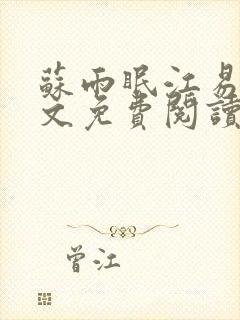 蘇雨眠江易
文免費閱讀
曾江